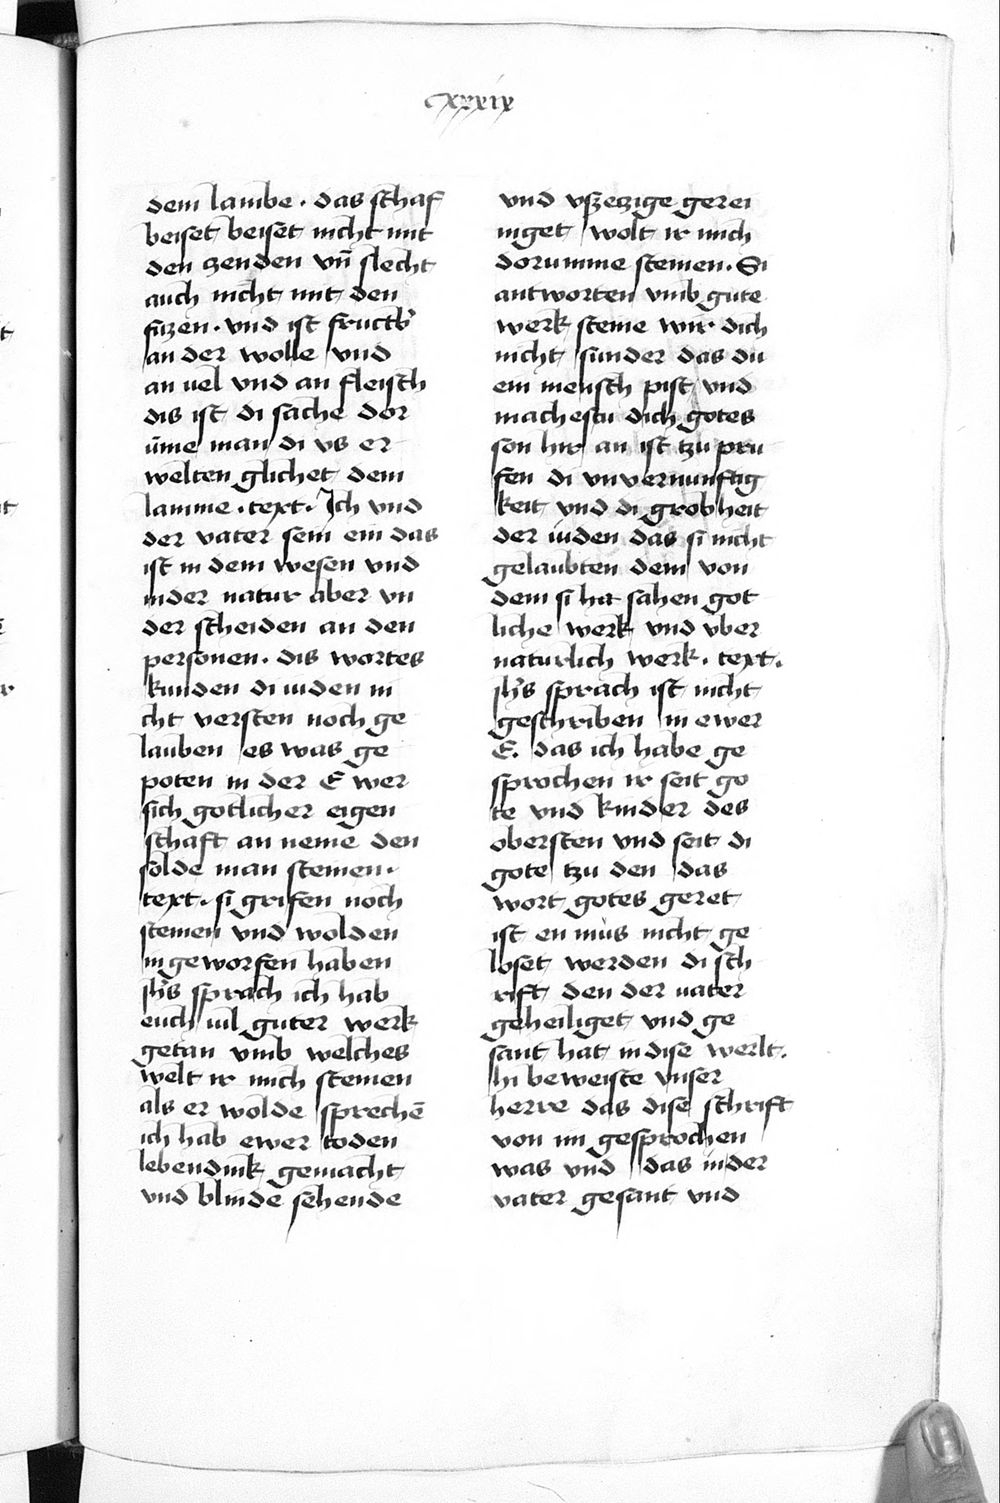 cxxxix
dem lambe. das schaf
beiset beiset nicht mit
den zenden vn̄ slecht
auch nicht mit den
fuzen. vnd ist
an der wolle vnd
an uel vnd an fleisch
dis ist di sache dor
ūme man di vs er
welten glichet dem
lamme. text. Ich vnd
der vater sein ein das
ist in dem wesen vnd
inder natur aber vn
der scheiden an den
personen. dis wortes
kunden di iuden ni
cht versten noch ge
lauben es was ge
poten in der E wer
sich gotlicher eigen
schaft an neme den
solde man steinen.
text. si grifen noch
steinen vnd wolden
in geworfen haben
ih's sprach ich hab
euch uil guter werk
getan vmb welches
welt ir mich steinen
als er wolde sprechē
ich hab ewer toden
lebendink gemacht
vnd blinde sehende
vnd vszezige gerei
niget wolt ir mich
dorumme steinen. Si
antworten vmb gute
werk steine wir dich
nicht sunder das du
ein mensch pist vnd
machestu dich gotes
son hir an ist tzu pru
fen di vnvernunftig
keit vnd di grobheit
der iuden das si nicht
gelaubten dem von
dem si hat sahen got
liche werk vnd vber
naturlich werk. text.
ih's sprach ist nicht
geschriben in ewer
E. das ich habe ge
sprochen ir seit go
te vnd kinder des
obersten vnd seit di
gote tzu den das
wort gotes geret
ist en mus nicht ge
loset werden di sch
rift den der uater
geheiliget vnd ge
sant hat in dise werlt.
hi beweiste vnser
herre das dise schrift
von im gesprochen
was vnd das in der
vater gesant vnd